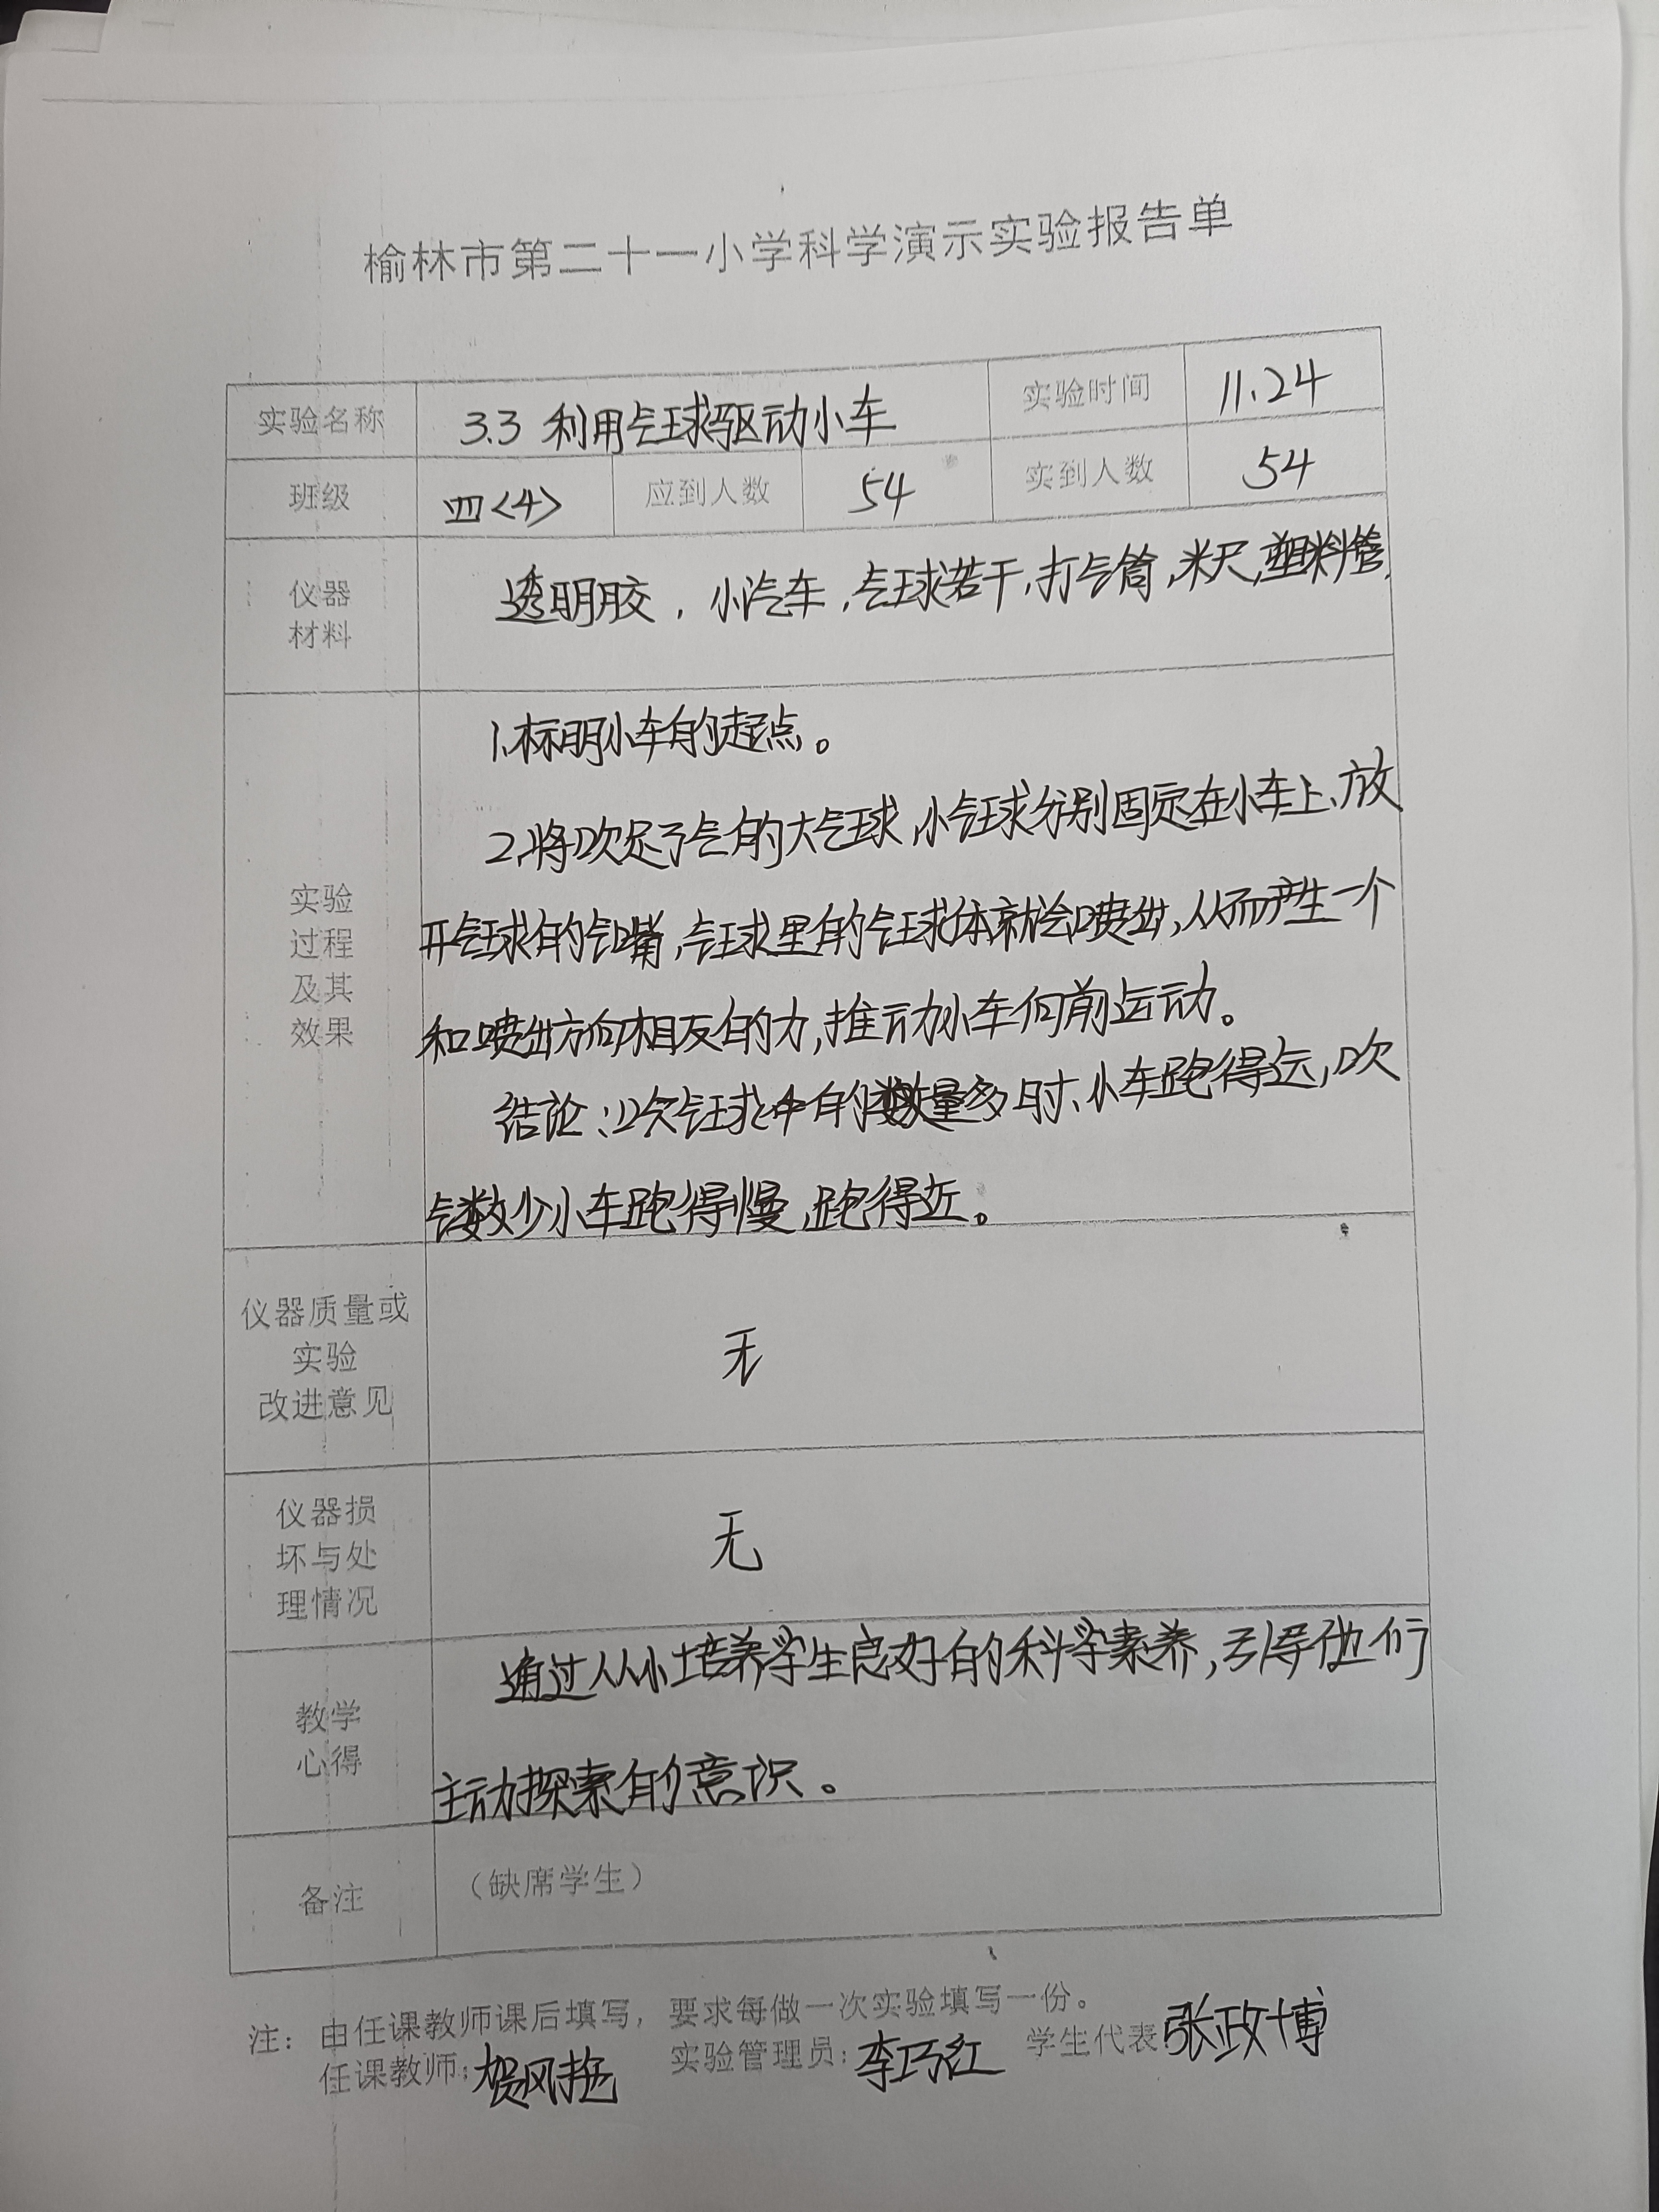 榆林市第二十一小学科学演示实验报告单
实验名称 3.3 利用气球驱动小车 实验时间 11.24
班级 四<4> 应到人数 54 实到人数 54
仪器
材料
透明胶，小汽车，气球若干，打气筒，米尺，塑料管
实验
过程
及其
效果
1、标明小车的起点。
2、将吹足了气的大气球，小气球分别固定在小车上、放
开气球的气嘴，气球里的气球体就会喷出，从而产生一个
和喷出方向相反的力，推动小车向前运动。
结论：吹气球中的数量多时、小车跑得远，吹
气数少小车跑得慢，跑得近。
仪器质量或
实验
改进意见
无
仪器损
坏与处
理情况
无
教学
心得
通过从小培养学生良好的科学素养，引导他们
主动探索的意识。
备注 （缺席学生）
注： 由任课教师课后填写，要求每做一次实验填写一份。
任课教师：贺风艳 实验管理员：李巧红 学生代表 张政博